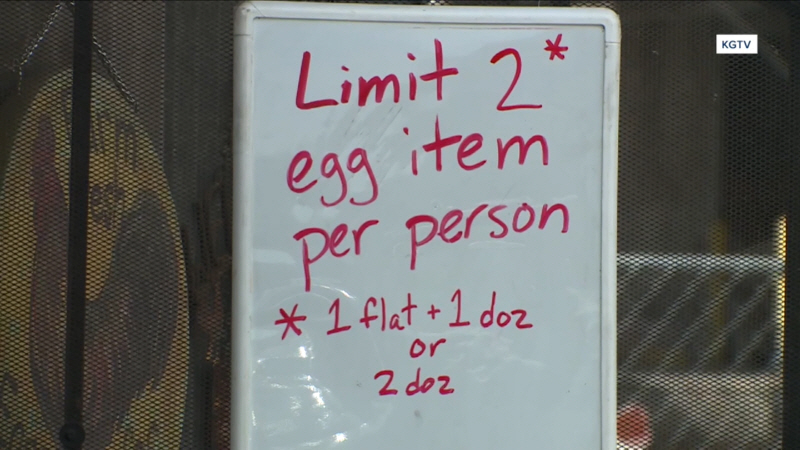 KGTV
Limit 2*
egg item
per person
* 1 flat + 1 doz
or
2 doz